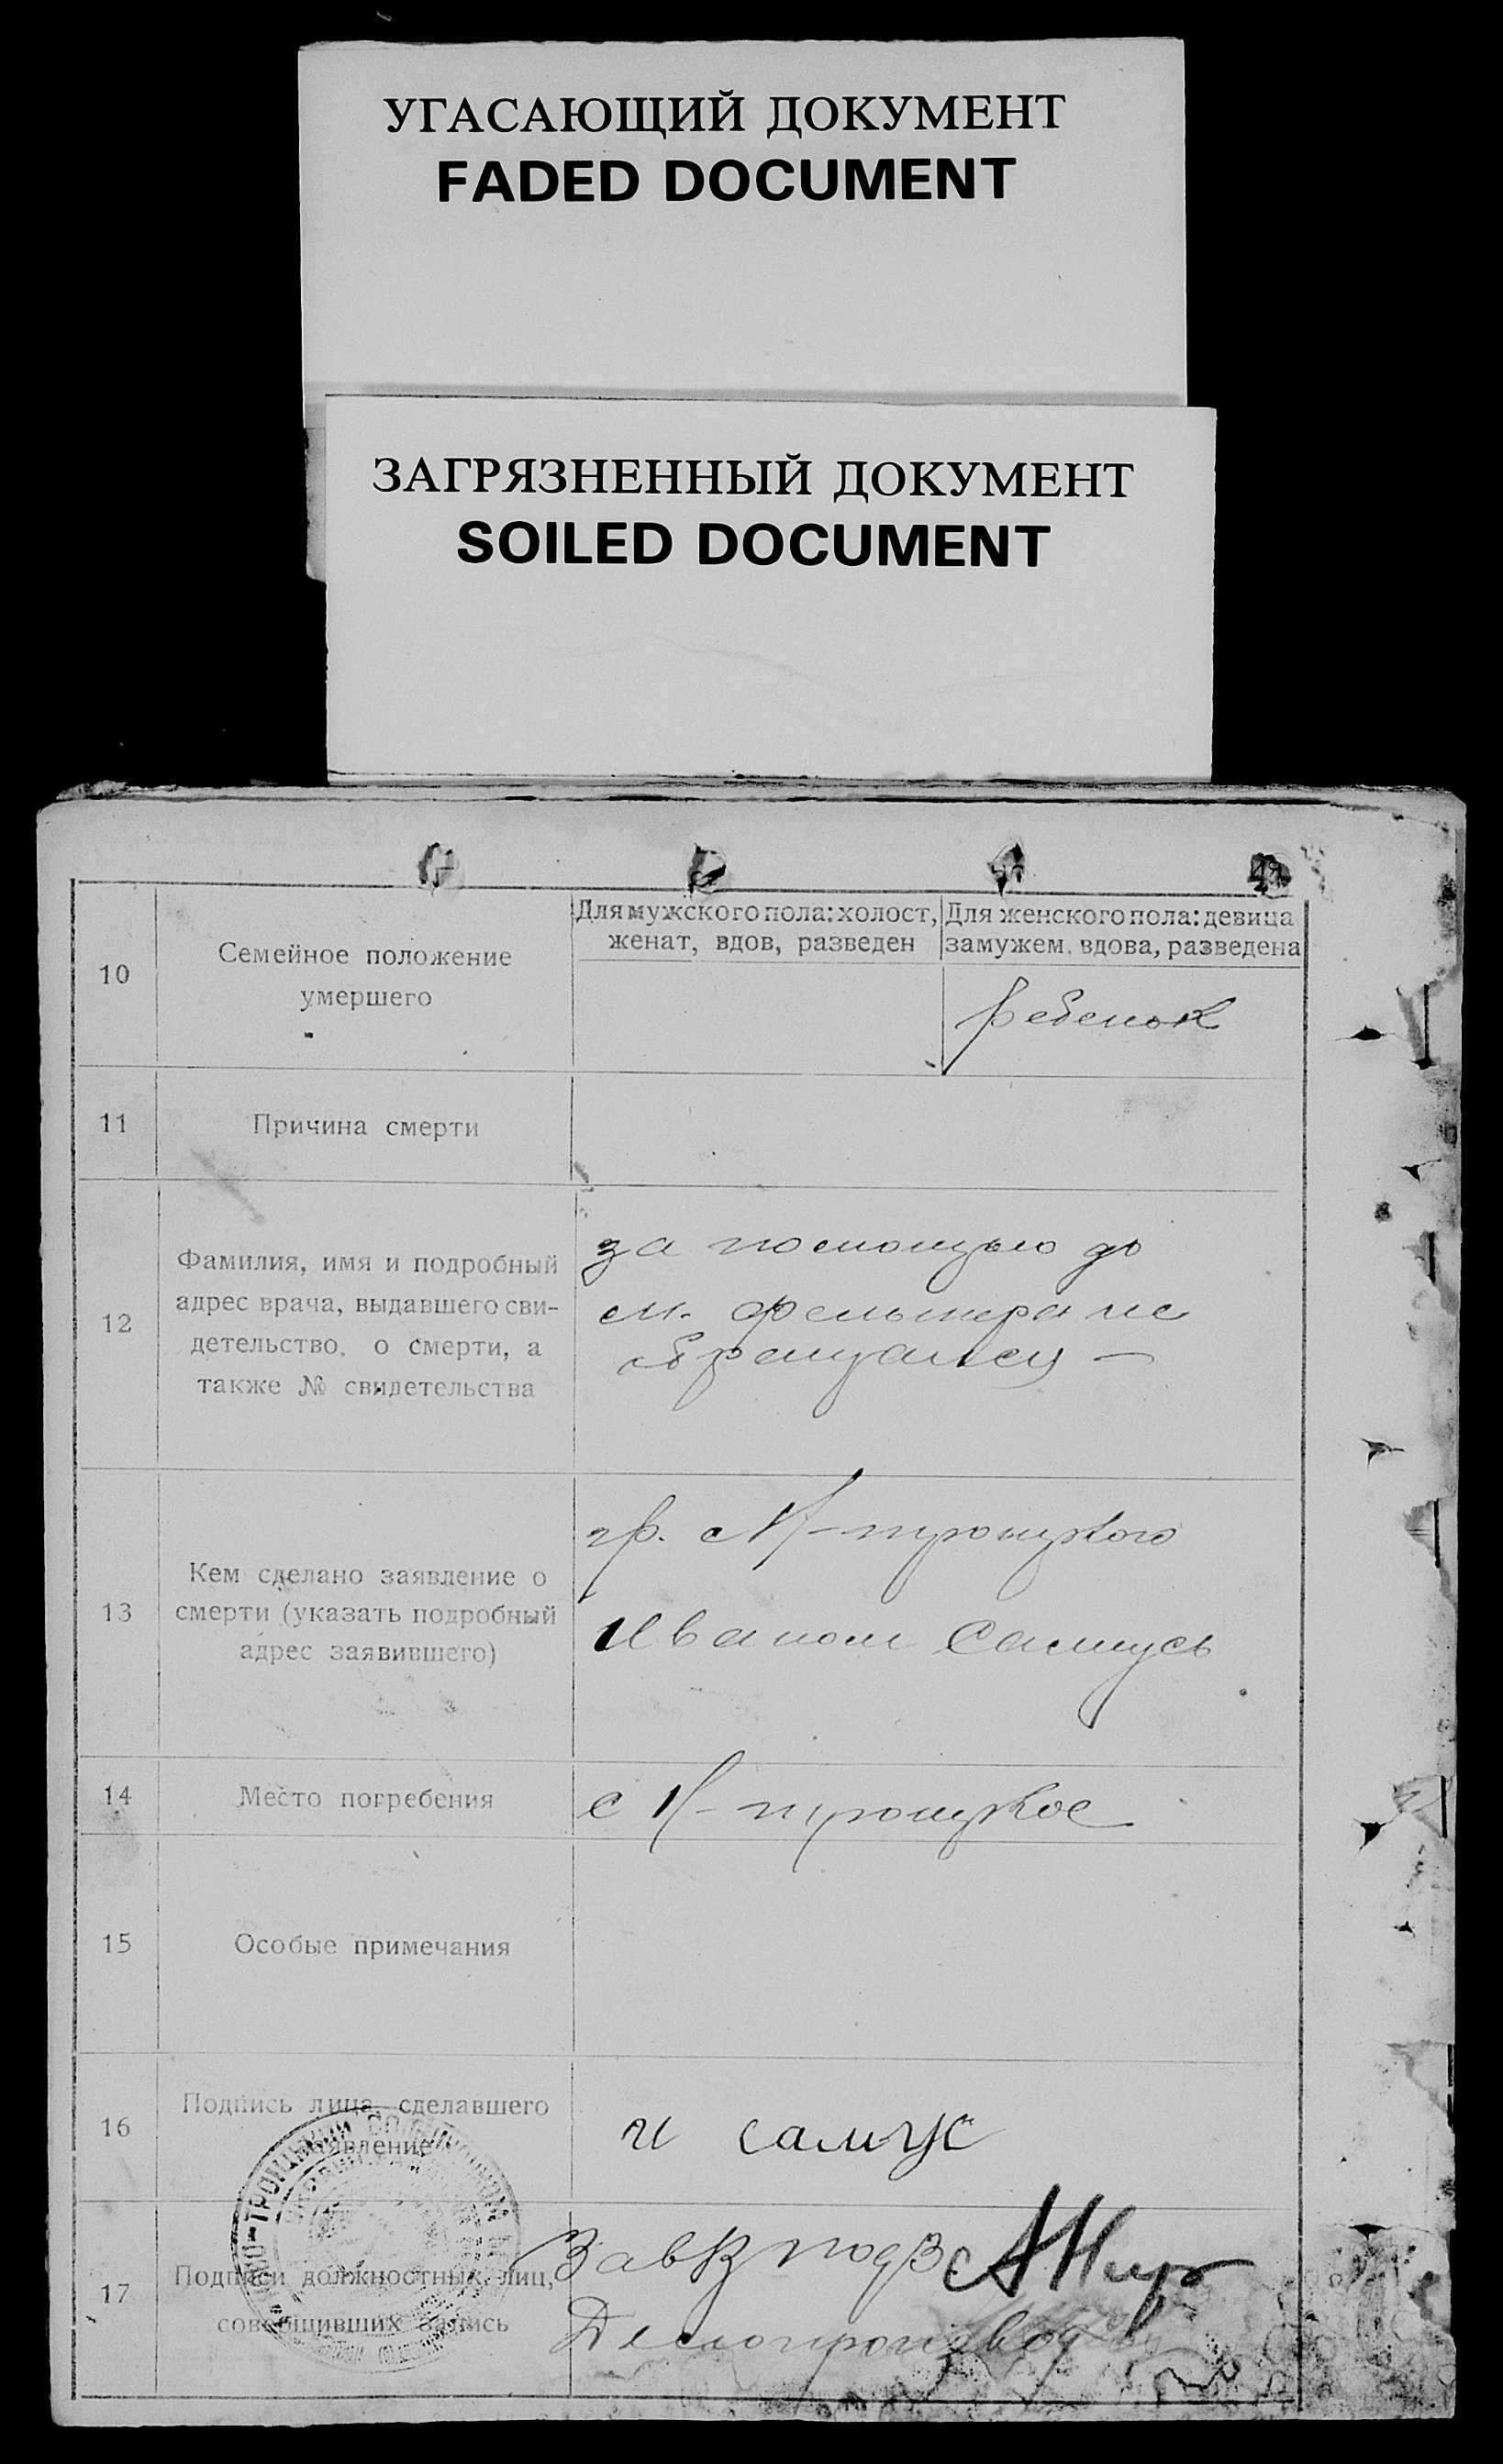 УГАСАЮЩИЙ ДОКУМЕНТ
FADED DOCUMENT
ЗАГРЯЗНЕННЫЙ ДОКУМЕНТ
SOILED DOCUMENT
10
Семейное положение
умершего
Для мужского пола: холост,
женат, вдов, разведен
Для женского пола: девица
замужем, вдова, разведена
ребенок
11
Причина смерти
12
Фамилия, имя и подробный
адрес врача, выдавшего сви-
детельство, о смерти, а
также № свидетельства
за помощью до
м. фельшера не
обращались —
13
Кем сделано заявление о
смерти (указать подробный
адрес заявившего)
гр. с Н-троицкого
Иваном Самусь
14
Место погребения
с Н-троицкое
15
Особые примечания
16
Подпись лица, сделавшего
заявление
и самус
17
Подписи должностных лиц,
совершивших запись
Зав
Делопроизвод